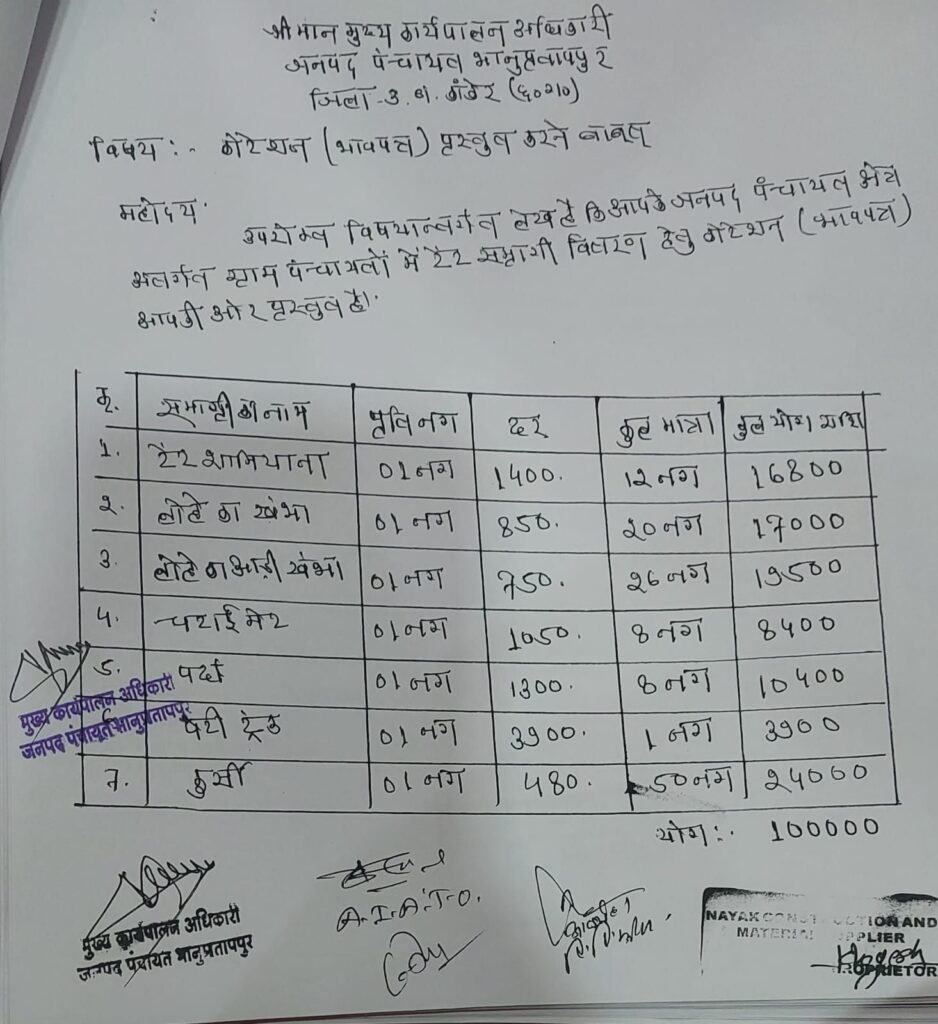 श्रीमान मुख्य कार्यपालन अधिकारी
जनपद पंचायत भानुप्रतापपुर
जिला - उ. ब. कांकेर (छ०ग०)
विषय :- कोटेशन (भावपत्र) प्रस्तुत करने बाबत
महोदय
उपरोक्त विषयान्तर्गत लेख है कि आपके जनपद पंचायत क्षेत्र
अंतर्गत ग्राम पंचायतों में टेंट सामग्री वितरण हेतु कोटेशन (भावपत्र)
आपकी ओर प्रस्तुत है।
क्र. सामाग्री का नाम प्रति नग दर कुल मात्रा कुल योग राशि
1. टेंट शामियाना 01 नग 1400. 12 नग 16800
2. लोहे का खंभा 01 नग 850. 20 नग 17000
3. लोहे का आड़ी खंभा 01 नग 750. 26 नग 19500
4. चटाई मेट 01 नग 1050. 8 नग 8400
5. पर्दा 01 नग 1300. 8 नग 10400
पेटी ट्रंक 01 नग 3900. 1 नग 3900
7. कुर्सी 01 नग 480. 50 नग 24000
योग :- 100000
मुख्य कार्यपालन अधिकारी
जनपद पंचायत भानुप्रतापपुर
मुख्य कार्यपालन अधिकारी
जनपद पंचायत भानुप्रतापपुर
A.I.A.T.O.
NAYAK CONSTRUCTION AND
MATERIAL SUPPLIER
PROPRIETOR